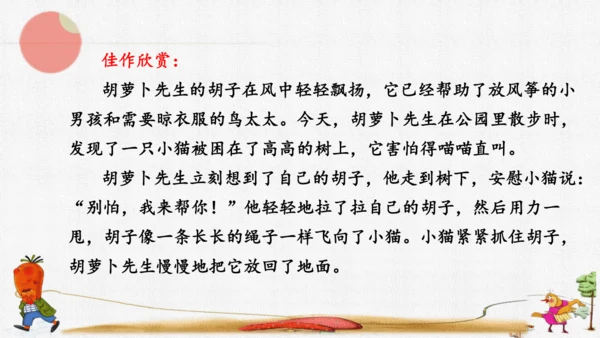 佳作欣赏：
胡萝卜先生的胡子在风中轻轻飘扬，它已经帮助了放风筝的小
男孩和需要晾衣服的鸟太太。今天，胡萝卜先生在公园里散步时，
发现了一只小猫被困在了高高的树上，它害怕得喵喵直叫。
胡萝卜先生立刻想到了自己的胡子，他走到树下，安慰小猫说：
“别怕，我来帮你！”他轻轻地拉了拉自己的胡子，然后用力一
甩，胡子像一条长长的绳子一样飞向了小猫。小猫紧紧抓住胡子，
胡萝卜先生慢慢地把它放回了地面。